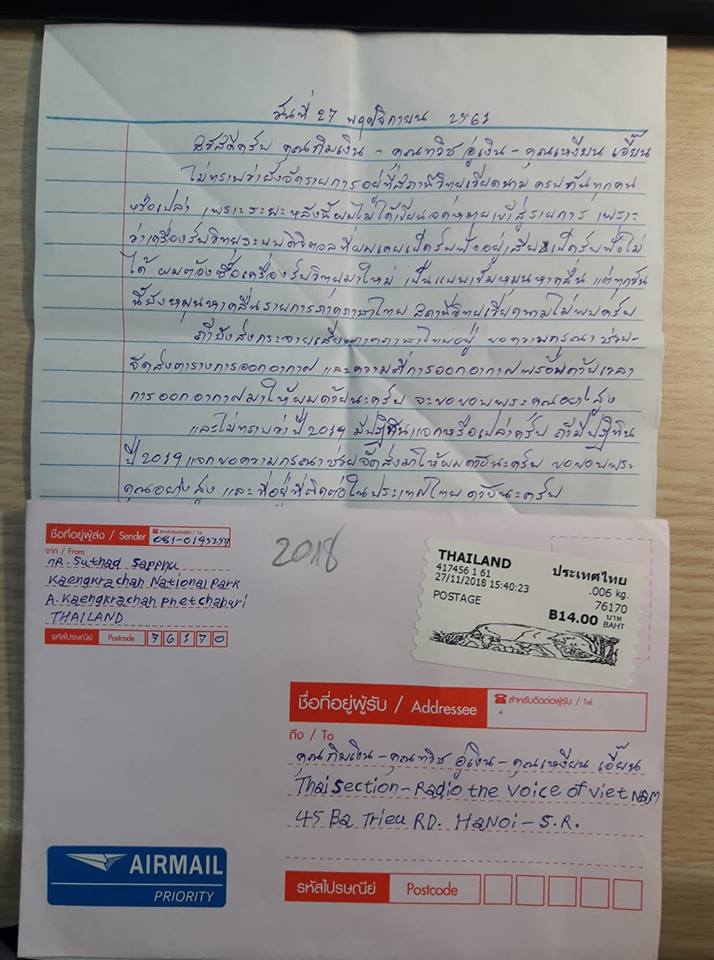 วันที่ 27 พฤศจิกายน 2561
สวัสดีครับ คุณกิมเงิน - คุณทวิช อู่เงิน - คุณเหงียน เอี๊ยน
ไม่ทราบว่ายังจัดรายการอยู่ที่สถานีวิทยุเวียดนาม ครบกันทุกคน
หรือเปล่า เพราะระยะหลังนี้ผมไม่ได้เขียนจดหมายเข้าสู่รายการ เพราะ
ว่าเครื่องรับวิทยุระบบดิจิตอลที่ผมเคยเปิดรับฟังอยู่เสีย เปิดรับฟังไม่
ได้ ผมต้องซื้อเครื่องรับวิทยุมาใหม่ เป็นแบบเข็มหมุนหาคลื่น แต่ทุกวัน
นี้ยังหมุนหาคลื่นรายการภาคภาษาไทย สถานีวิทยุเวียดนามไม่พบครับ
ถ้ายังส่งกระจายเสียงภาคภาษาไทยอยู่ ขอความกรุณาช่วย-
จัดส่งตารางการออกอากาศ และความถี่การออกอากาศพร้อมด้วยเวลา
การออกอากาศมาให้ผมด้วยนะครับ จะขอบพระคุณอย่างสูง
และไม่ทราบว่าปี 2019 มีปฏิทินแจกหรือเปล่าครับ ถ้ามีปฏิทิน
ปี 2019 แจกขอความกรุณาช่วยจัดส่งมาให้ผมด้วยนะครับ ขอขอบพระ
คุณอย่างสูง และที่อยู่ที่ติดต่อในประเทศไทย ด้วยนะครับ
ชื่อที่อยู่ผู้ส่ง / Sender
สำหรับติดต่อผู้ส่ง / Tel.
081-0195257
จาก / From
MR. Suthad Sapphu
Kaengkrachan National Park
A. Kaengkrachan Phetchaburi
THAILAND
รหัสไปรษณีย์ Postcode 76170
2018
THAILAND ประเทศไทย
417456 1 61 .006 kg.
27/11/2018 15:40:23 76170
POSTAGE B14.00 บาท BAHT
ชื่อที่อยู่ผู้รับ / Addressee
สำหรับติดต่อผู้รับ / Tel.
ถึง / To
คุณกิมเงิน - คุณทวิช อู่เงิน - คุณเหงียน เอี๊ยน
Thai Section - Radio the Voice of Viet NAM
45 Ba Trieu RD. HaNoi - S.R.
AIRMAIL
PRIORITY
รหัสไปรษณีย์ Postcode